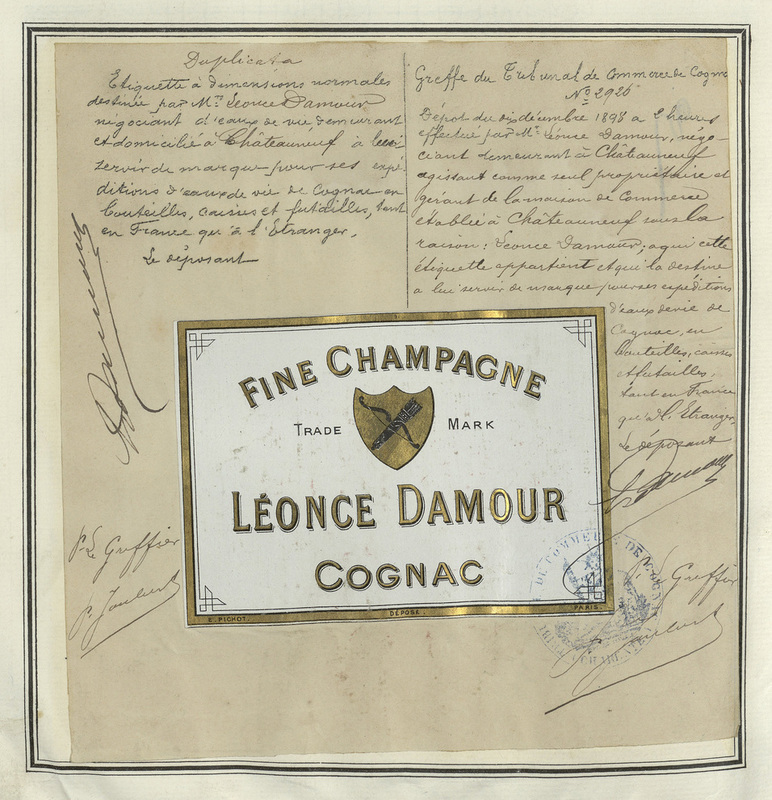 Duplicata
Etiquette à dimensions normales
destinée par Mr. Léonce Damour,
négociant d'eaux de vie, demeurant
et domicilié à Châteauneuf à lui
servir de marque pour ses expé-
ditions d'eaux de vie de Cognac en
bouteilles, caisses et futailles, tant
en France qu'à l'Etranger.
Le déposant
L Damour
Pr Le Greffier
P. Joubert
Greffe du Tribunal de Commerce de Cognac
No 2926
Dépôt du dix décembre 1898 à 2 heures
effectué par Mr. Léonce Damour, négo-
ciant demeurant à Châteauneuf
agissant comme seul propriétaire et
gérant de la maison de Commerce
établie à Châteauneuf sous la
raison: Léonce Damour; à qui cette
étiquette appartient et qui la destine
à lui servir de marque pour ses expéditions
d'eaux de vie de
Cognac, en
bouteilles, caisses
et futailles,
tant en France
qu'à l'Etranger.
Le déposant
L Damour
Greffier
Joubert
FINE CHAMPAGNE
TRADE MARK
LÉONCE DAMOUR
COGNAC
E. PICHOT. DÉPOSÉ. PARIS.
DE COMMERCE DE COGNAC